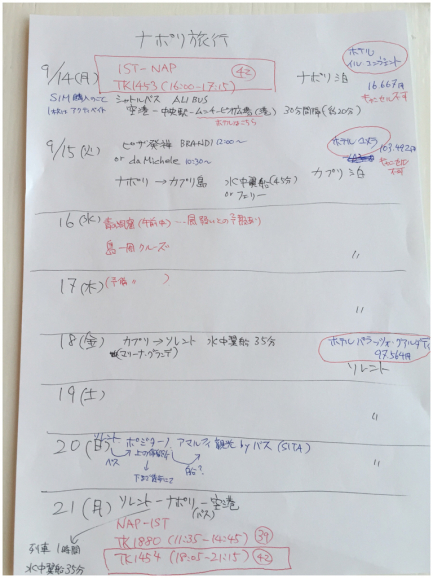 ナポリ旅行
9/14(月) IST-NAP 42
TK1453 (16:00-17:15)
ナポリ泊
ホテル
イル コンヴェント
16,667円
キャンセル不可
SIM購入のこと
アクティベイト
シャトルバス ALIBUS
空港-中央駅-ムニチーピオ広場(港) 30分間隔(約20分)
ホテルはこちら
9/15(火) ピザ発祥 BRANDI 12:00~
or da Michele 10:30~
ナポリ → カプリ島 水中翼船(45分)
or フェリー
カプリ泊
ホテル
キャンセル
不可
16(水) 青の洞窟(午前中)
島一周クルーズ
〃
17(木) (予備 〃 )
〃
18(金) カプリ→ソレント 水中翼船35分
(マリーナ・グランデ)
ホテル パラッツォ
97,564円
ソレント
19(土)
〃
20(日) ソレント ポジターノ アマルフィ観光 by バス (SITA)
バス
船?
〃
21(月) ソレント-ナポリ-空港
(バス)
列車 1時間
水中翼船35分
NAP-IST
TK1880 (11:35-14:45) 39
TK1454 (18:05-21:15) 42